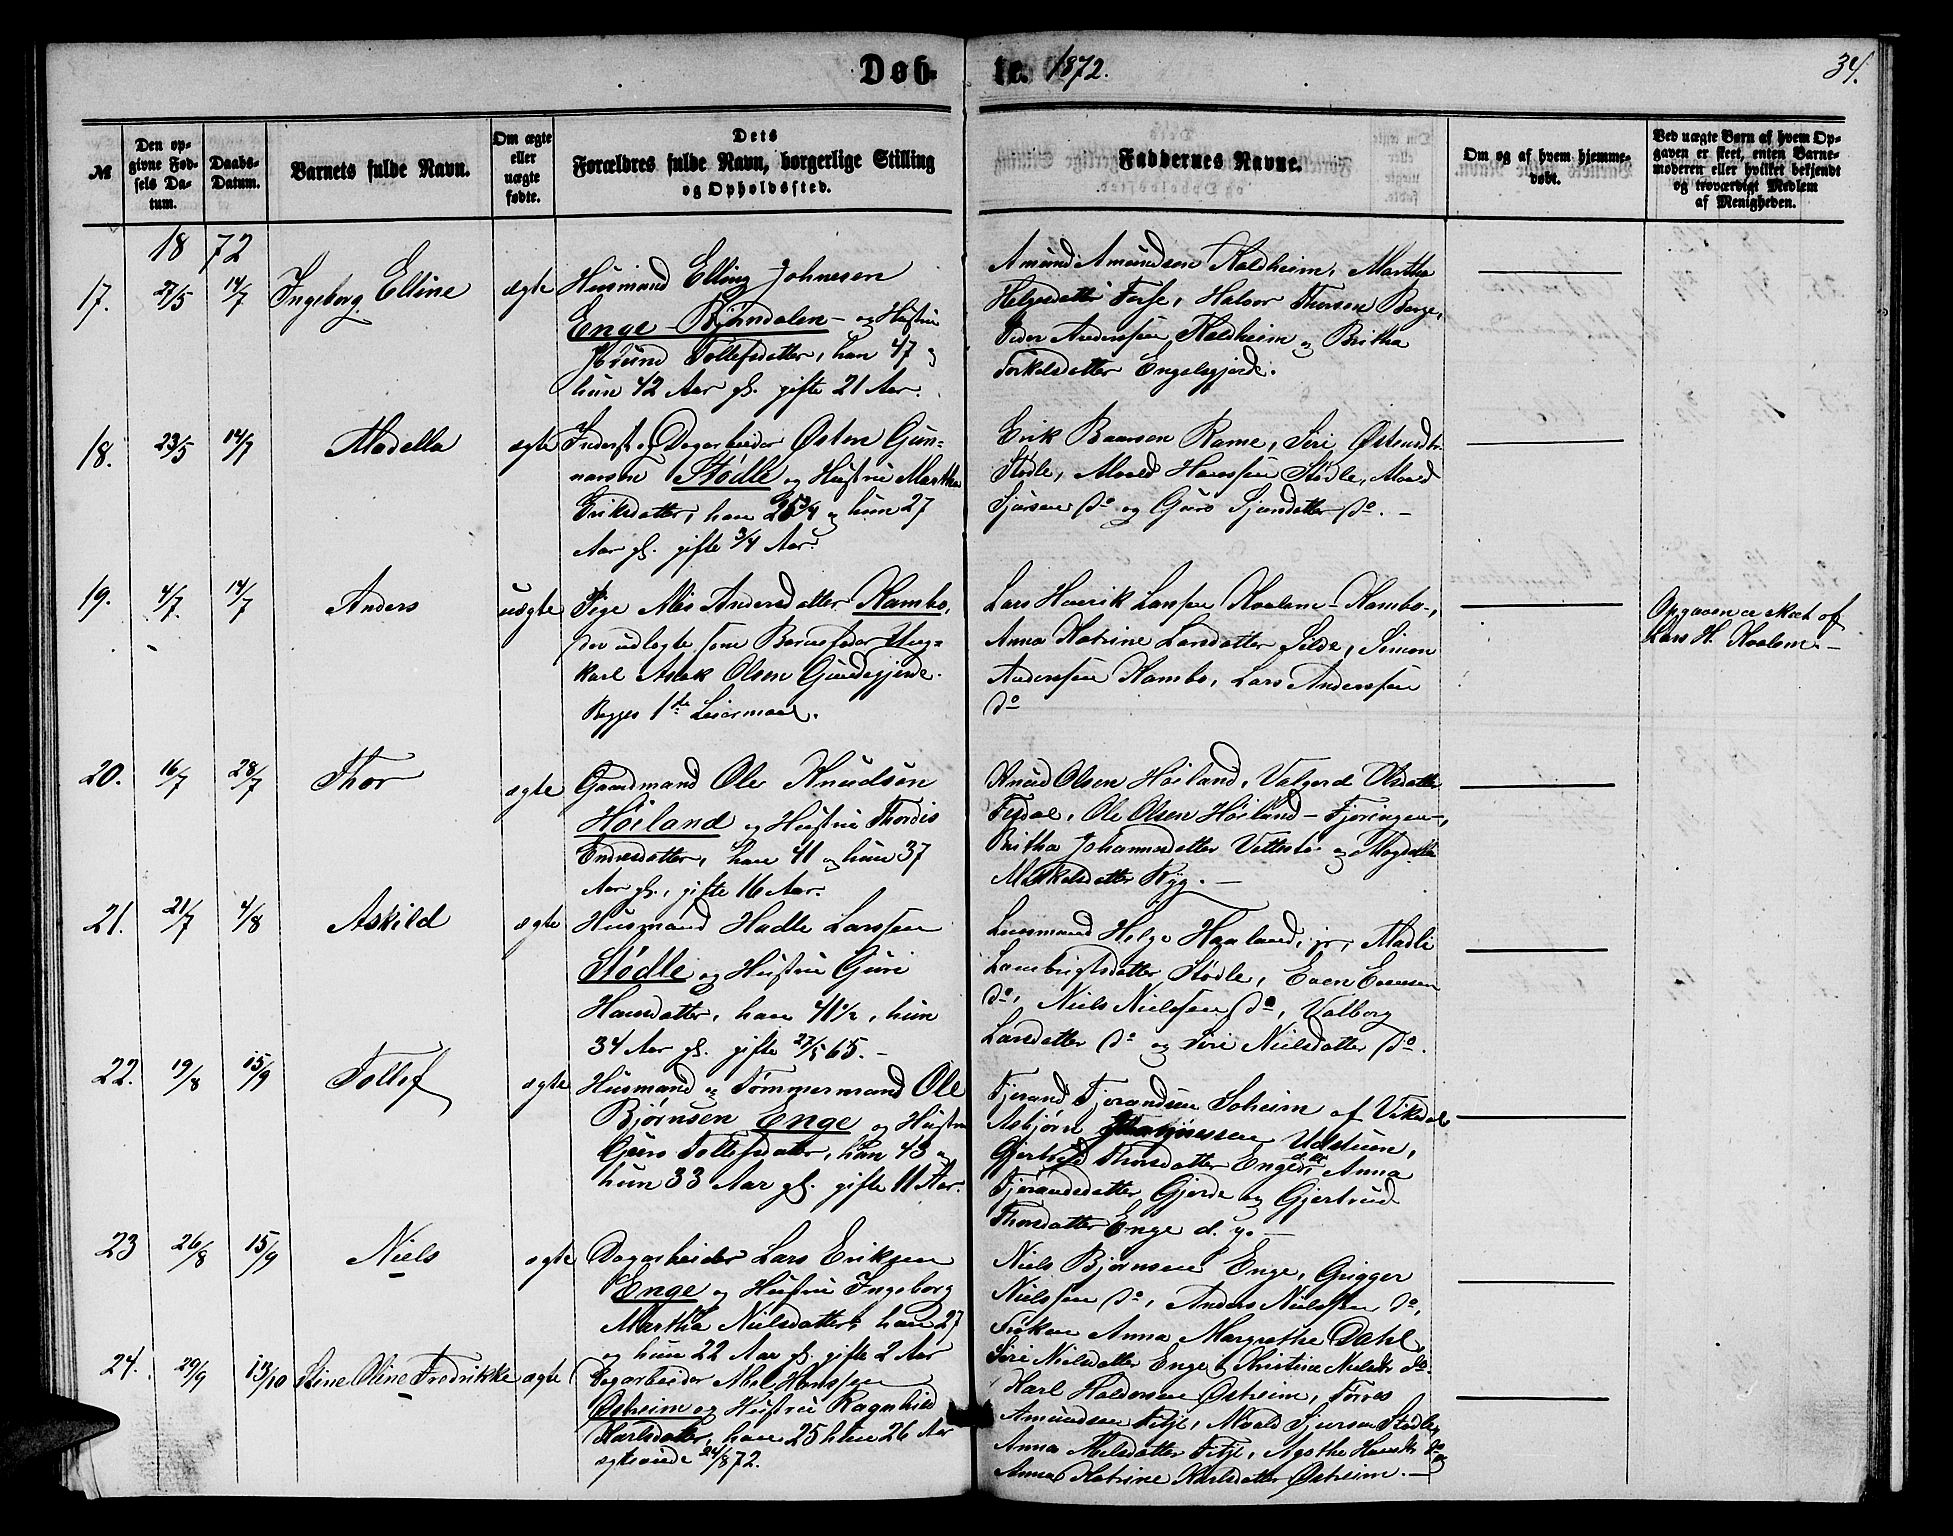 Døb-
te. 1872.
34.
№
Den op-
givne Fød-
sels Da-
tum.
Daabs-
Datum.
Barnets fulde Navn.
Om ægte
eller
uægte
fødte.
Dets
Forældres fulde Navn, borgerlige Stilling
og Opholdssted.
Faddernes Navne.
Om og af hvem hjemme-
døbt.
Ved uægte Børn af hvem Op-
gaven er skeet, enten Barne-
moderen eller hvilket bekjendt
og troværdigt Medlem
af Menigheden.
1872
17. 27/5 14/7 Ingeborg Elline ægte
Husmand Elling Johnesen
Enge-Bjørndalen- og Hustru
Jorund Tollefsdatter, han 47 og
hun 42 Aar gl. gifte 21 Aar.
Amund Amundsen Koldheim, Martha
Helgesdatter Forse, Halvor Thorsen Berge,
Peder Anderssen Koldheim og Britha
Torkelsdatter Engelsgjerde.
18. 23/5 14/7 Madella ægte
Inderst og Dagarbeider Østen Gun-
narsen Stødle og Hustru Martha
Eriksdatter, han 25 3/4 og hun 27
Aar gl. gifte 3/4 Aar.
Erik Baarsen Rame, Siri Østensdtr
Stødle, Mvald Hanssen Stødle, Mvad
Sjursen do og Guro Sjursdatter do. -
19. 4/7. 14/7 Anders uægte
Pige Mis Andersdatter Kambo,
der udlagte som Barnefader Ung-
karl Aslak Olsen Gundegjerde.
Begges 1de Leiermaal.
Lars Henrik Larssen Kvalene-Kambo-,
Anna Katrine Larsdatter Silde, Simon
Anderssen Kambo, Lars Anderssen
do
Opgaven er skeet af
Lars H. Kvalene.-
20. 16/7 28/7 Thor ægte
Gaardmand Ole Knudsen
Høiland og Hustru Thordis
Endresdatter, han 41 og hun 37
Aar gl., gifte 16 Aar.
Knud Olsen Høiland, Valgerd Olsdatter
Fesdal, Ole Olsen Høiland-Fjøringen-,
Britha Johannesdatter Vettestø og Magdela
Mikkelsdatter Ryg. -
21. 21/7 4/8 Askild ægte
Husmand Hadle Larssen
Stødle og Hustru Guri
Hansdatter, han 41 1/2, hun
34 Aar gl. gifte 27/5 65.-
Lensmand Helge Haaland, jr, Madli
Lambrigtsdatter Stødle, Even Evensen
do, Niels Nielssen do, Valborg
Larsdatter do og Siri Nielsdatter do.
22. 19/8 15/9 Tollef ægte
Husmand og Tømmermand Ole
Bjørnsen Enge og Hustru
Guro Tollefsdatter, han 43 og
hun 33 Aar gl. gifte 11 Aar.
Fjerand Fjerandsen Soheim af Vikedal
Asbjørn Udstuen,
Gjertrud Thorsdatter Enge d.æ. Anna
Fjerandsdatter Gjerde og Gjertrud
Thorsdatter Enge d. y. -
23 26/8 15/9 Niels ægte
Dagarbeider Lars Eriksen
Enge og Hustru Ingeborg
Martha Nielsdatter, han 27
og hun 22 Aar gl. gifte 2 Aar
Niels Bjørnsen Enge, Grigger
Nielssen do, Anders Nielssen do,
Frøken Anna Margrethe Dahl,
Siri Nielsdatter Enge og Kristine Nielsdtr do.
24. 29/9 13/10 Stine Oline Fredrikke ægte
Dagarbeider Mel Hanssen
Østreim og Hustru Ragnhild
Karlsdatter, han 25 hun 26 Aar
ægteviede 24/8 72.
Karl Haldorsen Østreim, Torres
Amundsen Fitje, Mvald Sjursen Stødle,
Anna Milsdatter Fitje, Agathe Hansdtr do
Anna Katrine Karlsdatter Østreim.-